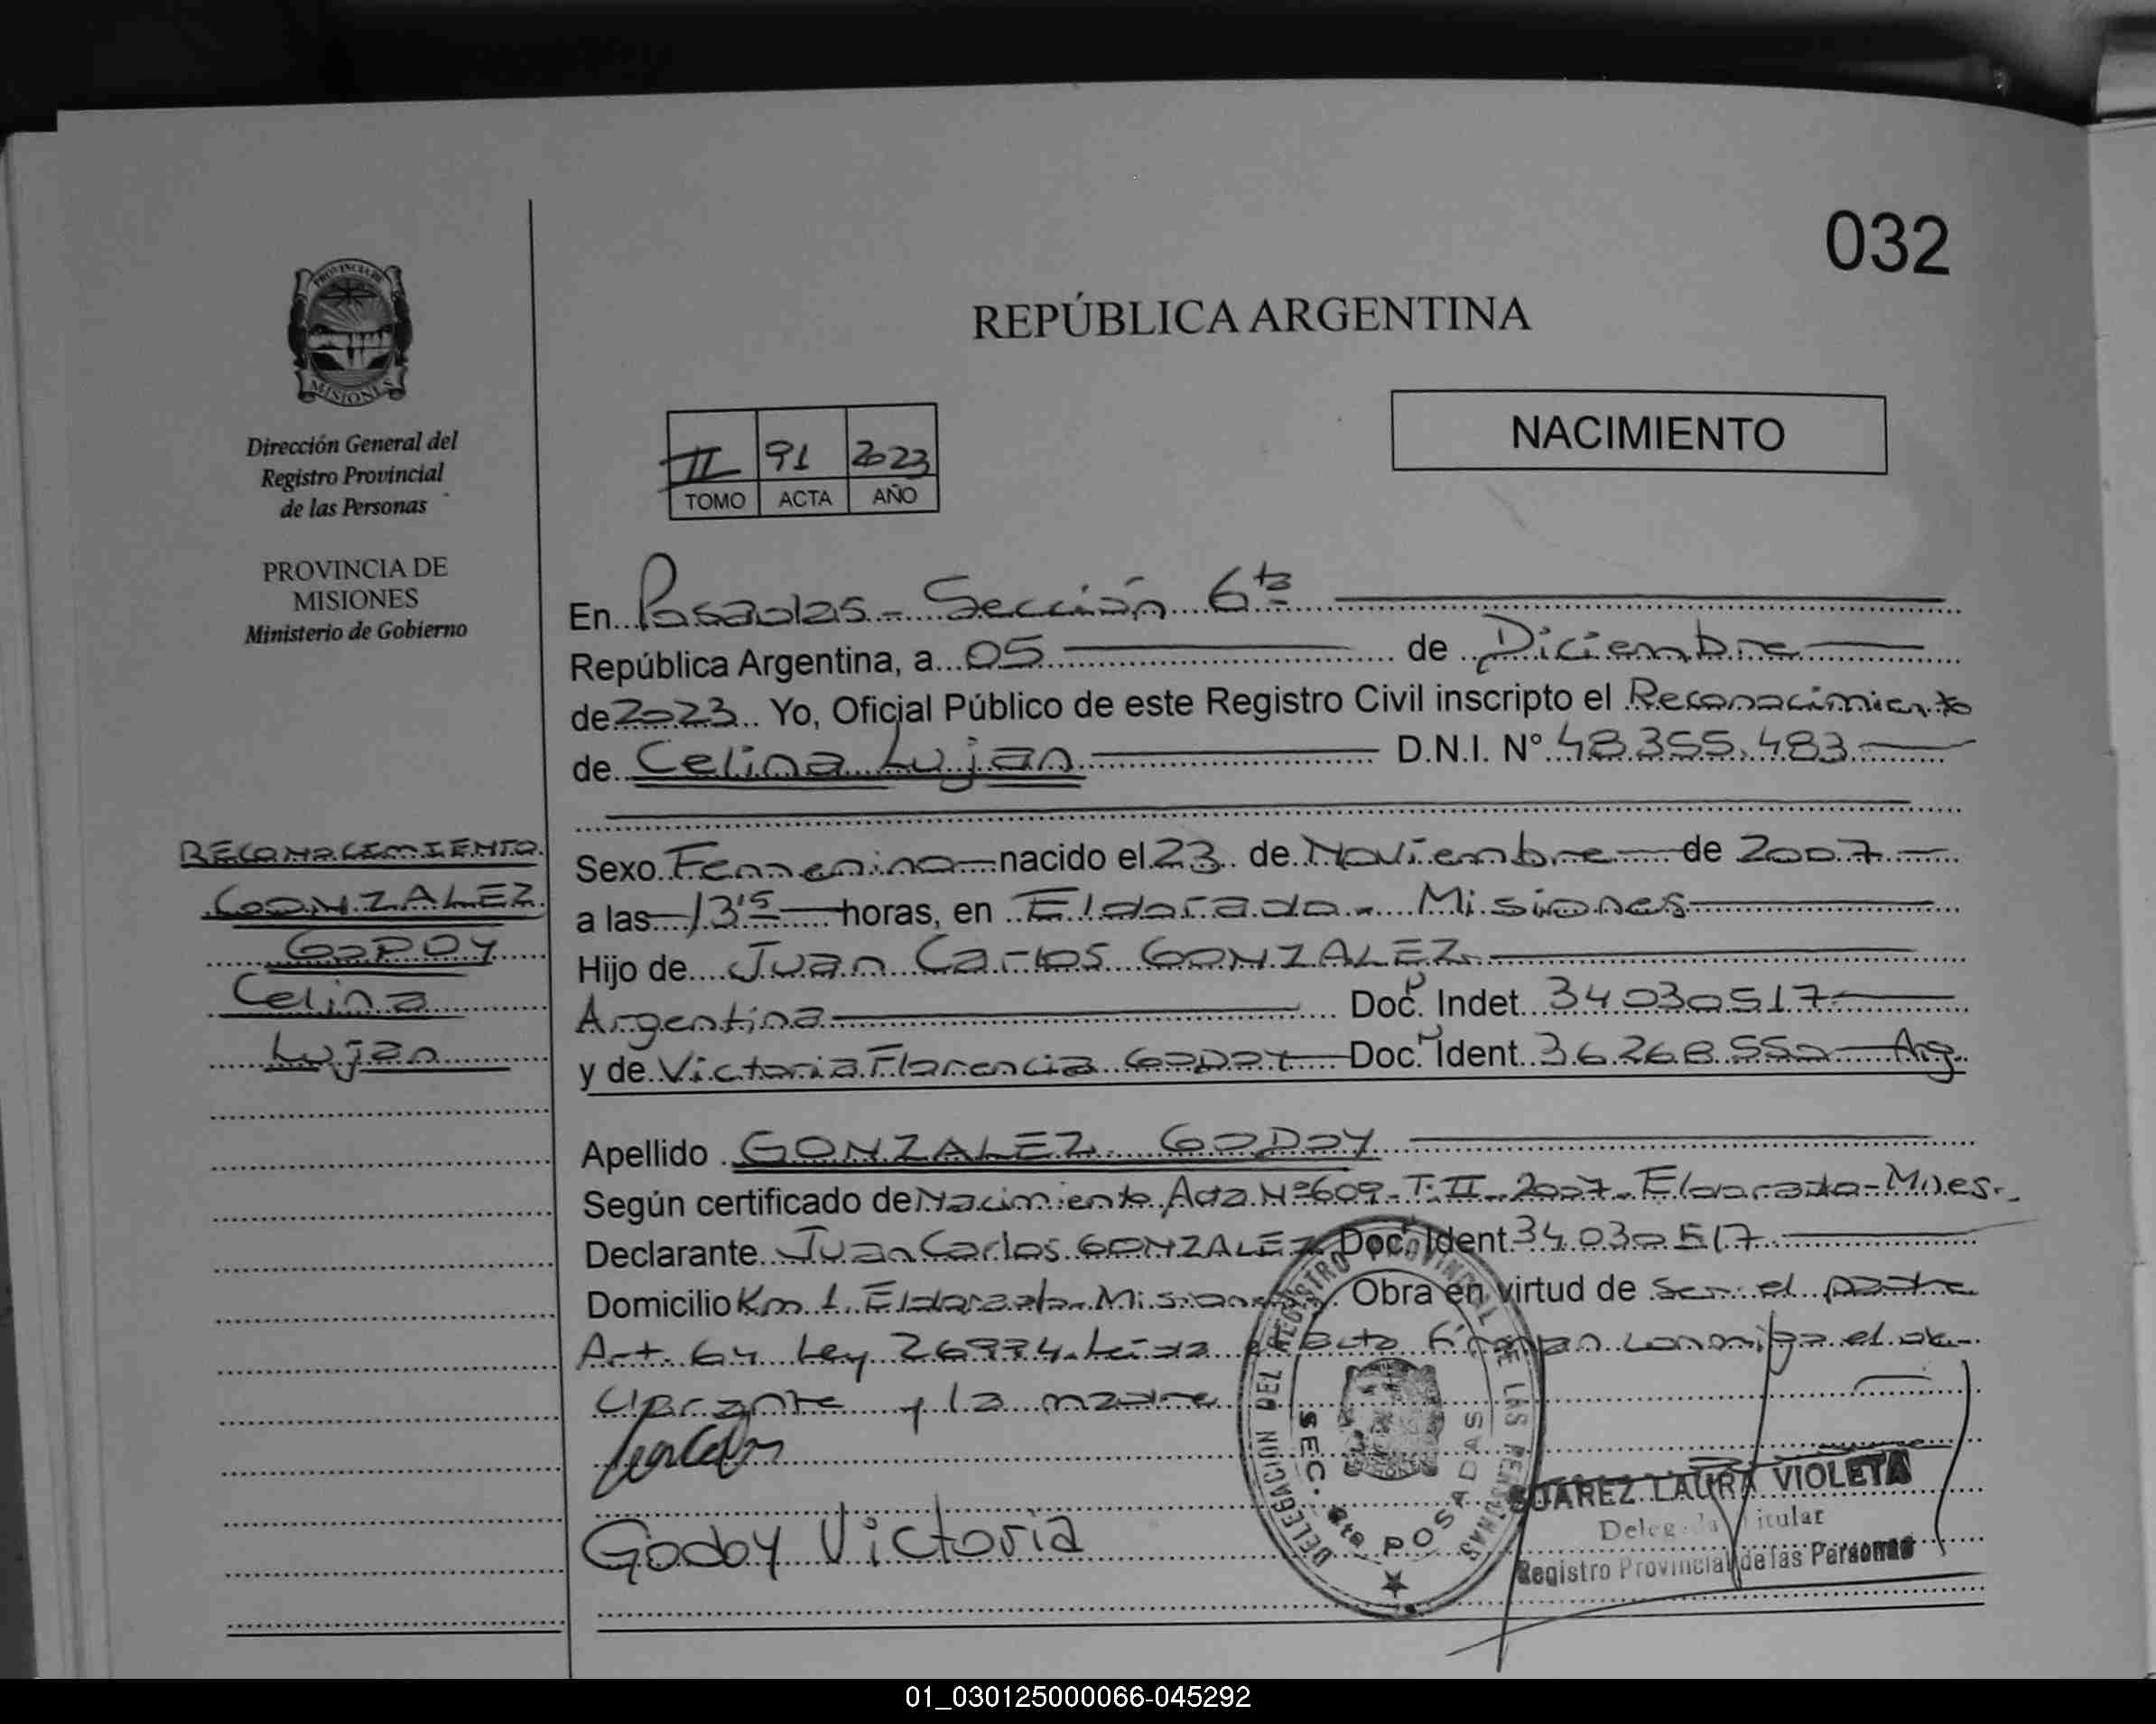 032
REPÚBLICA ARGENTINA
NACIMIENTO
PROVINCIA DE
MISIONES
Dirección General del
Registro Provincial
de las Personas
PROVINCIA DE
MISIONES
Ministerio de Gobierno
II 91 2023
TOMO ACTA AÑO
En Posadas - Sección 6ta
República Argentina, a 05 de Diciembre
de 2023 Yo, Oficial Público de este Registro Civil inscripto el Reconocimiento
de Celina Lujan D.N.I. N° 48.355.483
RECONOCIMIENTO
GONZALEZ
GODOY
Celina
Lujan
Sexo Femenino nacido el 23 de Noviembre de 2007
a las 13'15 horas, en Eldorado - Misiones
Hijo de Juan Carlos GONZALEZ
Argentina Doc. Indet. 34030517
y de Victoria Florencia GODOY Doc. Ident. 36.268.550 Arg.
Apellido GONZALEZ GODOY
Según certificado de Nacimiento Acta Nº 609 - T. II - 2007 - Eldorado - Mnes.
Declarante Juan Carlos GONZALEZ Doc. Ident. 34030517
Domicilio Km 1 Eldorado - Misiones Obra en virtud de ser el padre
Art. 64 Ley 26994. Leída el acta Firman conmigo el de-
clarante y la madre
Godoy Victoria
DELEGACIÓN DEL REGISTRO PROVINCIAL DE LAS PERSONAS
SEC. 6ta POSADAS
SUAREZ LAURA VIOLETA
Delegada Titular
Registro Provincial de las Personas
01_030125000066-045292